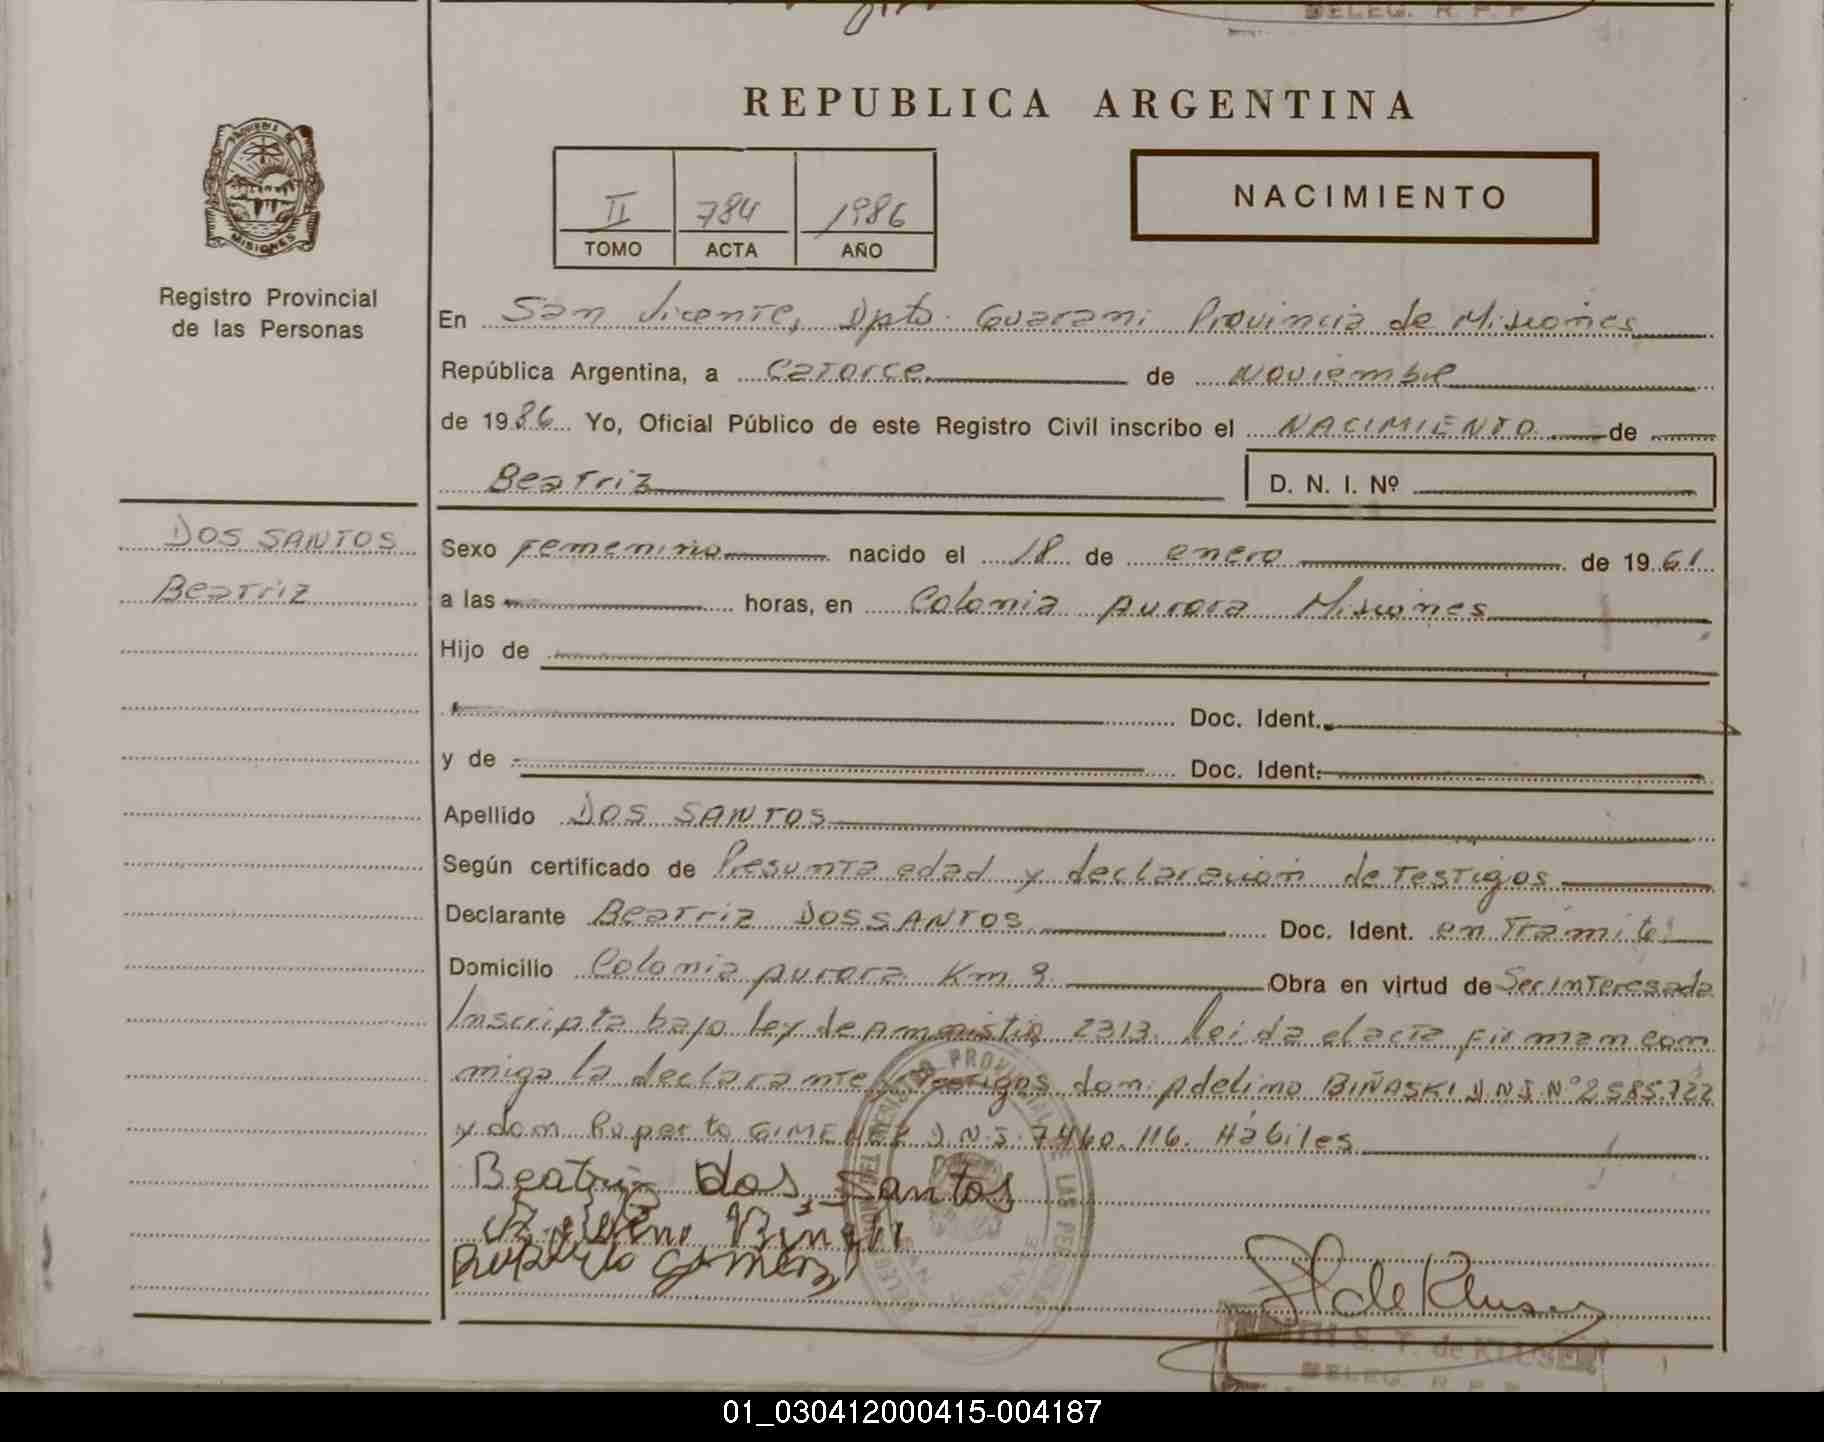 DELEG. R. P. P
REPUBLICA ARGENTINA
PROVINCIA DE
MISIONES
Registro Provincial
de las Personas
II 784 1986
TOMO ACTA AÑO
NACIMIENTO
En San Vicente, Dpto. Guarani Provincia de Misiones
República Argentina, a Catorce de Noviembre
de 1986 Yo, Oficial Público de este Registro Civil inscribo el NACIMIENTO de
Beatriz D. N. I. Nº
DOS SANTOS
Beatriz
Sexo Femenino nacido el 18 de enero de 1961
a las horas, en Colonia Aurora Misiones
Hijo de
Doc. Ident.
y de Doc. Ident.
Apellido DOS SANTOS
Según certificado de Presunta edad y declaración de Testigos
Declarante Beatriz DOS SANTOS Doc. Ident. en Trámite
Domicilio Colonia Aurora Km 9. Obra en virtud de Ser interesada
Inscripta bajo ley de Amnistia 2313. leida el acta firman con
migo la declarante y Testigos don: Adelino BIÑASKI D.N.I. Nº 2.585.722
y don Ruperto GIMENEZ D.N.I. 7.460.116. Hábiles
Beatriz dos Santos
de Kluser
S. T. de KLUSER
DELEG. R. P. P.
01_030412000415-004187